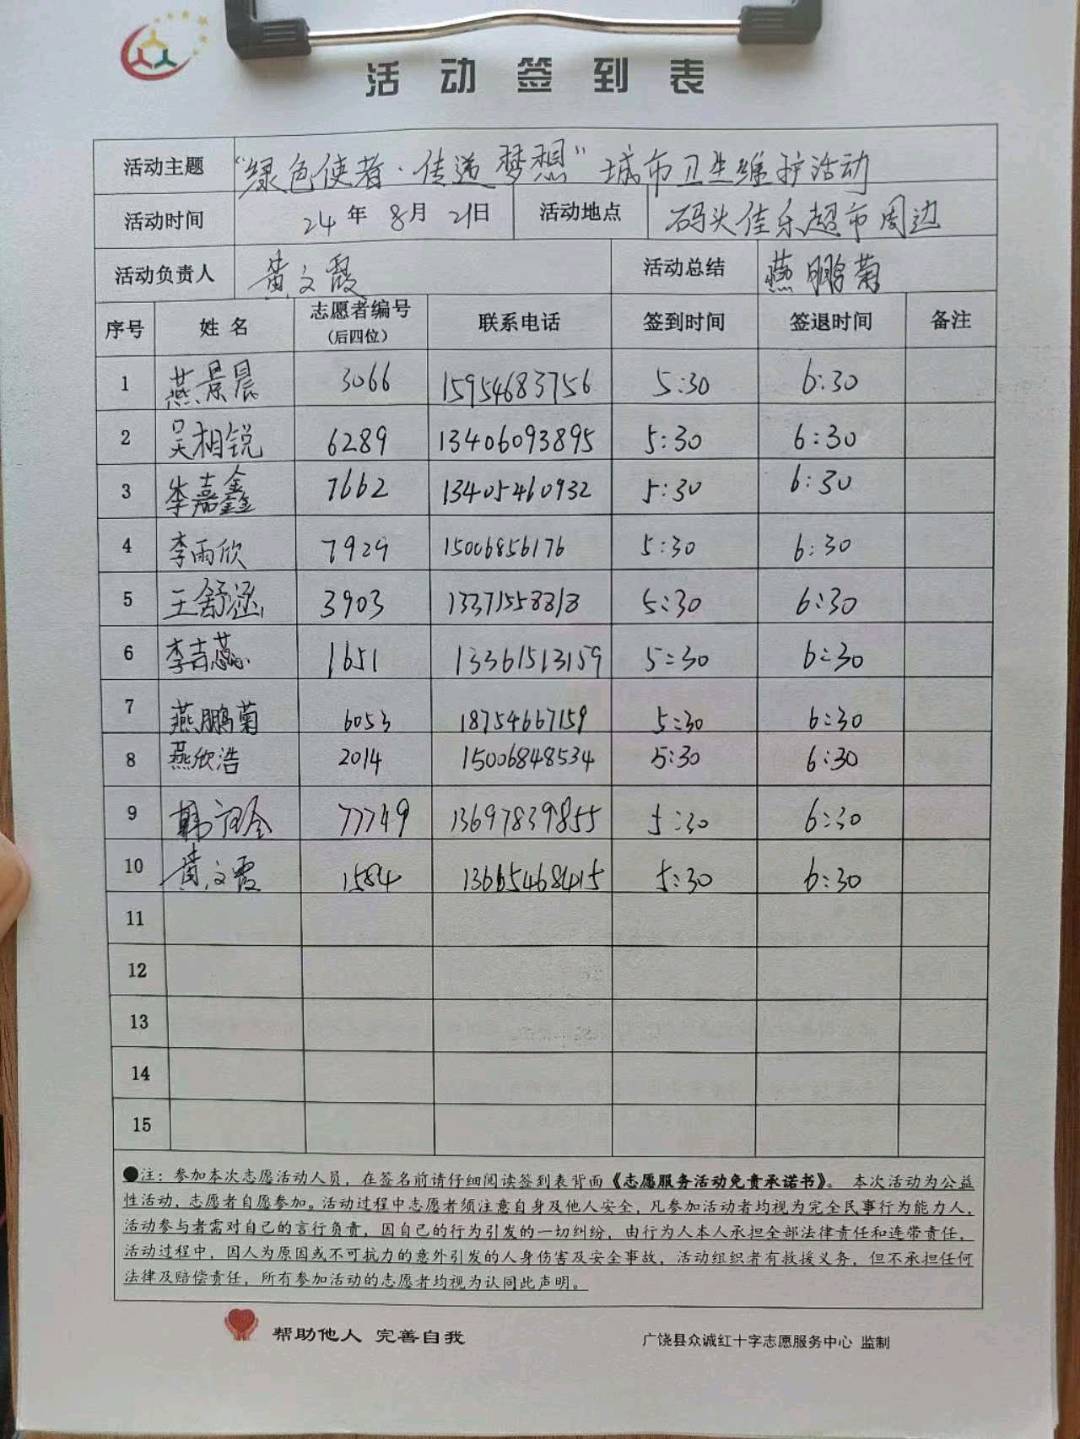 活动签到表
活动主题 “绿色使者·传递梦想”城市卫生维护活动
活动时间 24年8月21日 活动地点 码头佳乐超市周边
活动负责人 黄文霞 活动总结 燕鹏菊
序号 姓名 志愿者编号(后四位) 联系电话 签到时间 签退时间 备注
1 燕景晨 3066 15954683756 5:30 6:30
2 吴相锐 6289 13406093895 5:30 6:30
3 李嘉鑫 7662 13405460932 5:30 6:30
4 李雨欣 7929 15006856176 5:30 6:30
5 王舒涵 3903 13371558818 5:30 6:30
6 李吉蕊 1651 13361513159 5:30 6:30
7 燕鹏菊 6053 18754667159 5:30 6:30
8 燕欣浩 2014 15006848534 5:30 6:30
9 韩 77749 13697839855 5:30 6:30
10 黄文霞 1584 13665468415 5:30 6:30
11
12
13
14
15
●注：参加本次志愿活动人员，在签名前请仔细阅读签到表背面《志愿服务活动免责承诺书》。本次活动为公益
性活动，志愿者自愿参加。活动过程中志愿者须注意自身及他人安全，凡参加活动者均视为完全民事行为能力人，
活动参与者需对自己的言行负责，因自己的行为引发的一切纠纷，由行为人本人承担全部法律责任和连带责任，
活动过程中，因人为原因或不可抗力的意外引发的人身伤害及安全事故，活动组织者有救援义务，但不承担任何
法律及赔偿责任，所有参加活动的志愿者均视为认同此声明。
帮助他人 完善自我 广饶县众诚红十字志愿服务中心 监制